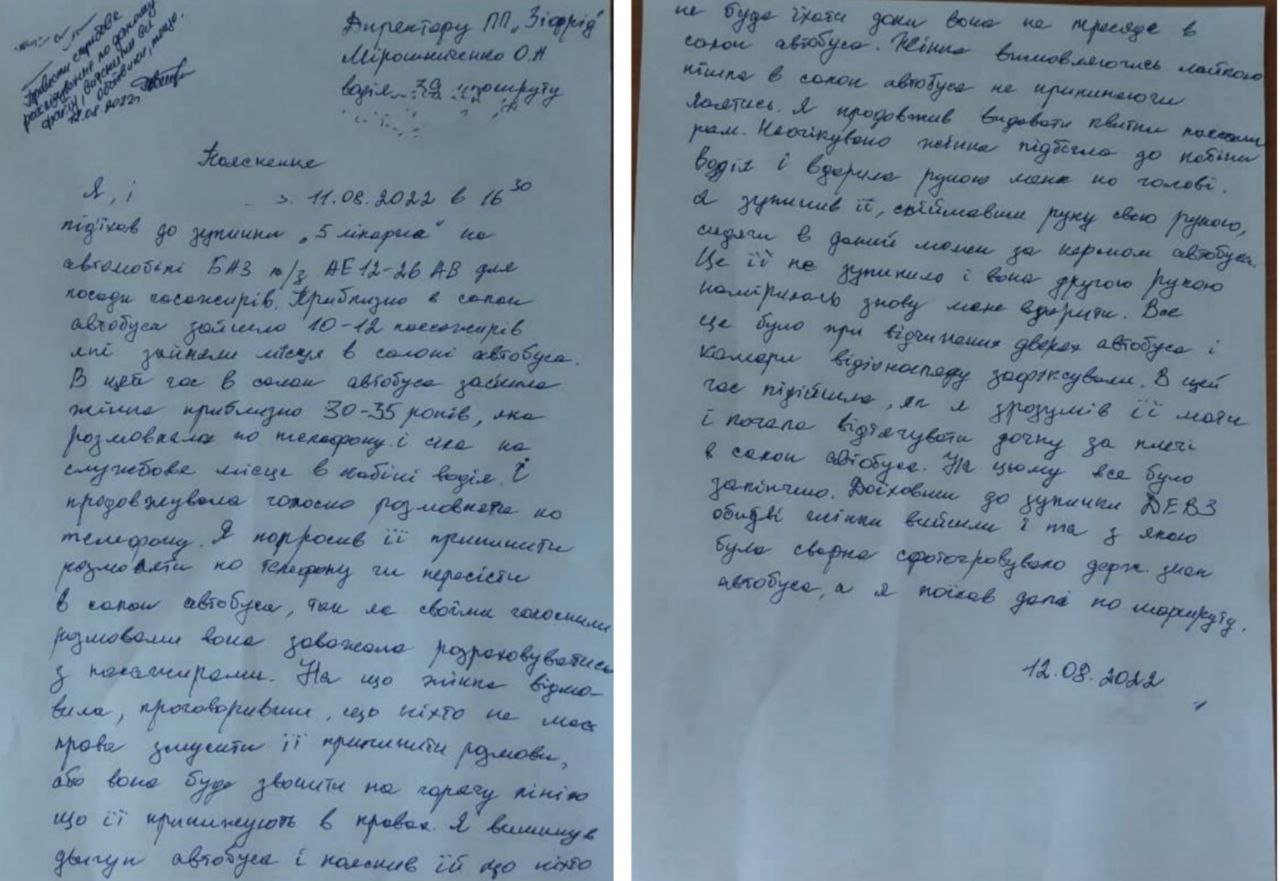 Провести службове
розслідування по даному
факту, вияснити всі
обставини, тощо.
12.08.2022
Директору ПП „Зігфрід"
Мірошниченко О.А
водія 39 маршруту
Пояснення
Я, 11.08.2022 в 16 30
під'їхав до зупинки „5 лікарня" на
автомобілі БАЗ н/з АЕ 12-26 АВ для
посади пасажирів. Приблизно в салон
автобуса зайшло 10-12 пассажирів
які зайняли місця в салоні автобуса.
В цей час в салон автобуса зайшла
жінка приблизно 30-35 років, яка
розмовляла по телефону і сіла на
службове місце в кабіні водія. І
продовжувала голосно розмовляти по
телефону. Я попросив її припинити
розмовляти по телефону чи пересісти
в салон автобуса, так як своїми голосними
розмовами вона заважала розраховуватись
з пасажирами. На що жінка відмо-
вила, проговоривши, що ніхто не має
права змусити її припинити розмови,
або вона буде звонити на гарячу лінію
що її принижують в правах. Я вимкнув
двигун автобуса і пояснив їй що ніхто
не буде їхати доки вона не пересяде в
салон автобуса. Жінка висловлюючись лайкою
пішла в салон автобуса не припиняючи
лаятись. Я продовжив видавати квитки пассажи
рам. Неочікувано жінка підбігла до кабіни
водія і вдарила рукою мене по голові.
Я зупинив її, спіймавши руку свою рукою,
сидячи в даний момент за кермом автобуса.
Це її не зупинило і вона другою рукою
намірилась знову мене вдарити. Все
це було при відчинених дверях автобуса і
камери відіонагляду зафіксували. В цей
час підійшла, як я зрозумів її мати
і почала відтягувати дочку за плечі
в салон автобуса. На цьому все було
закінчено. Доїхавши до зупинки ДЕВЗ
обидві жінки вийшли і та з якою
була сварка сфотографувала держ. знак
автобуса, а я поїхав далі по маршруту.
12.08.2022